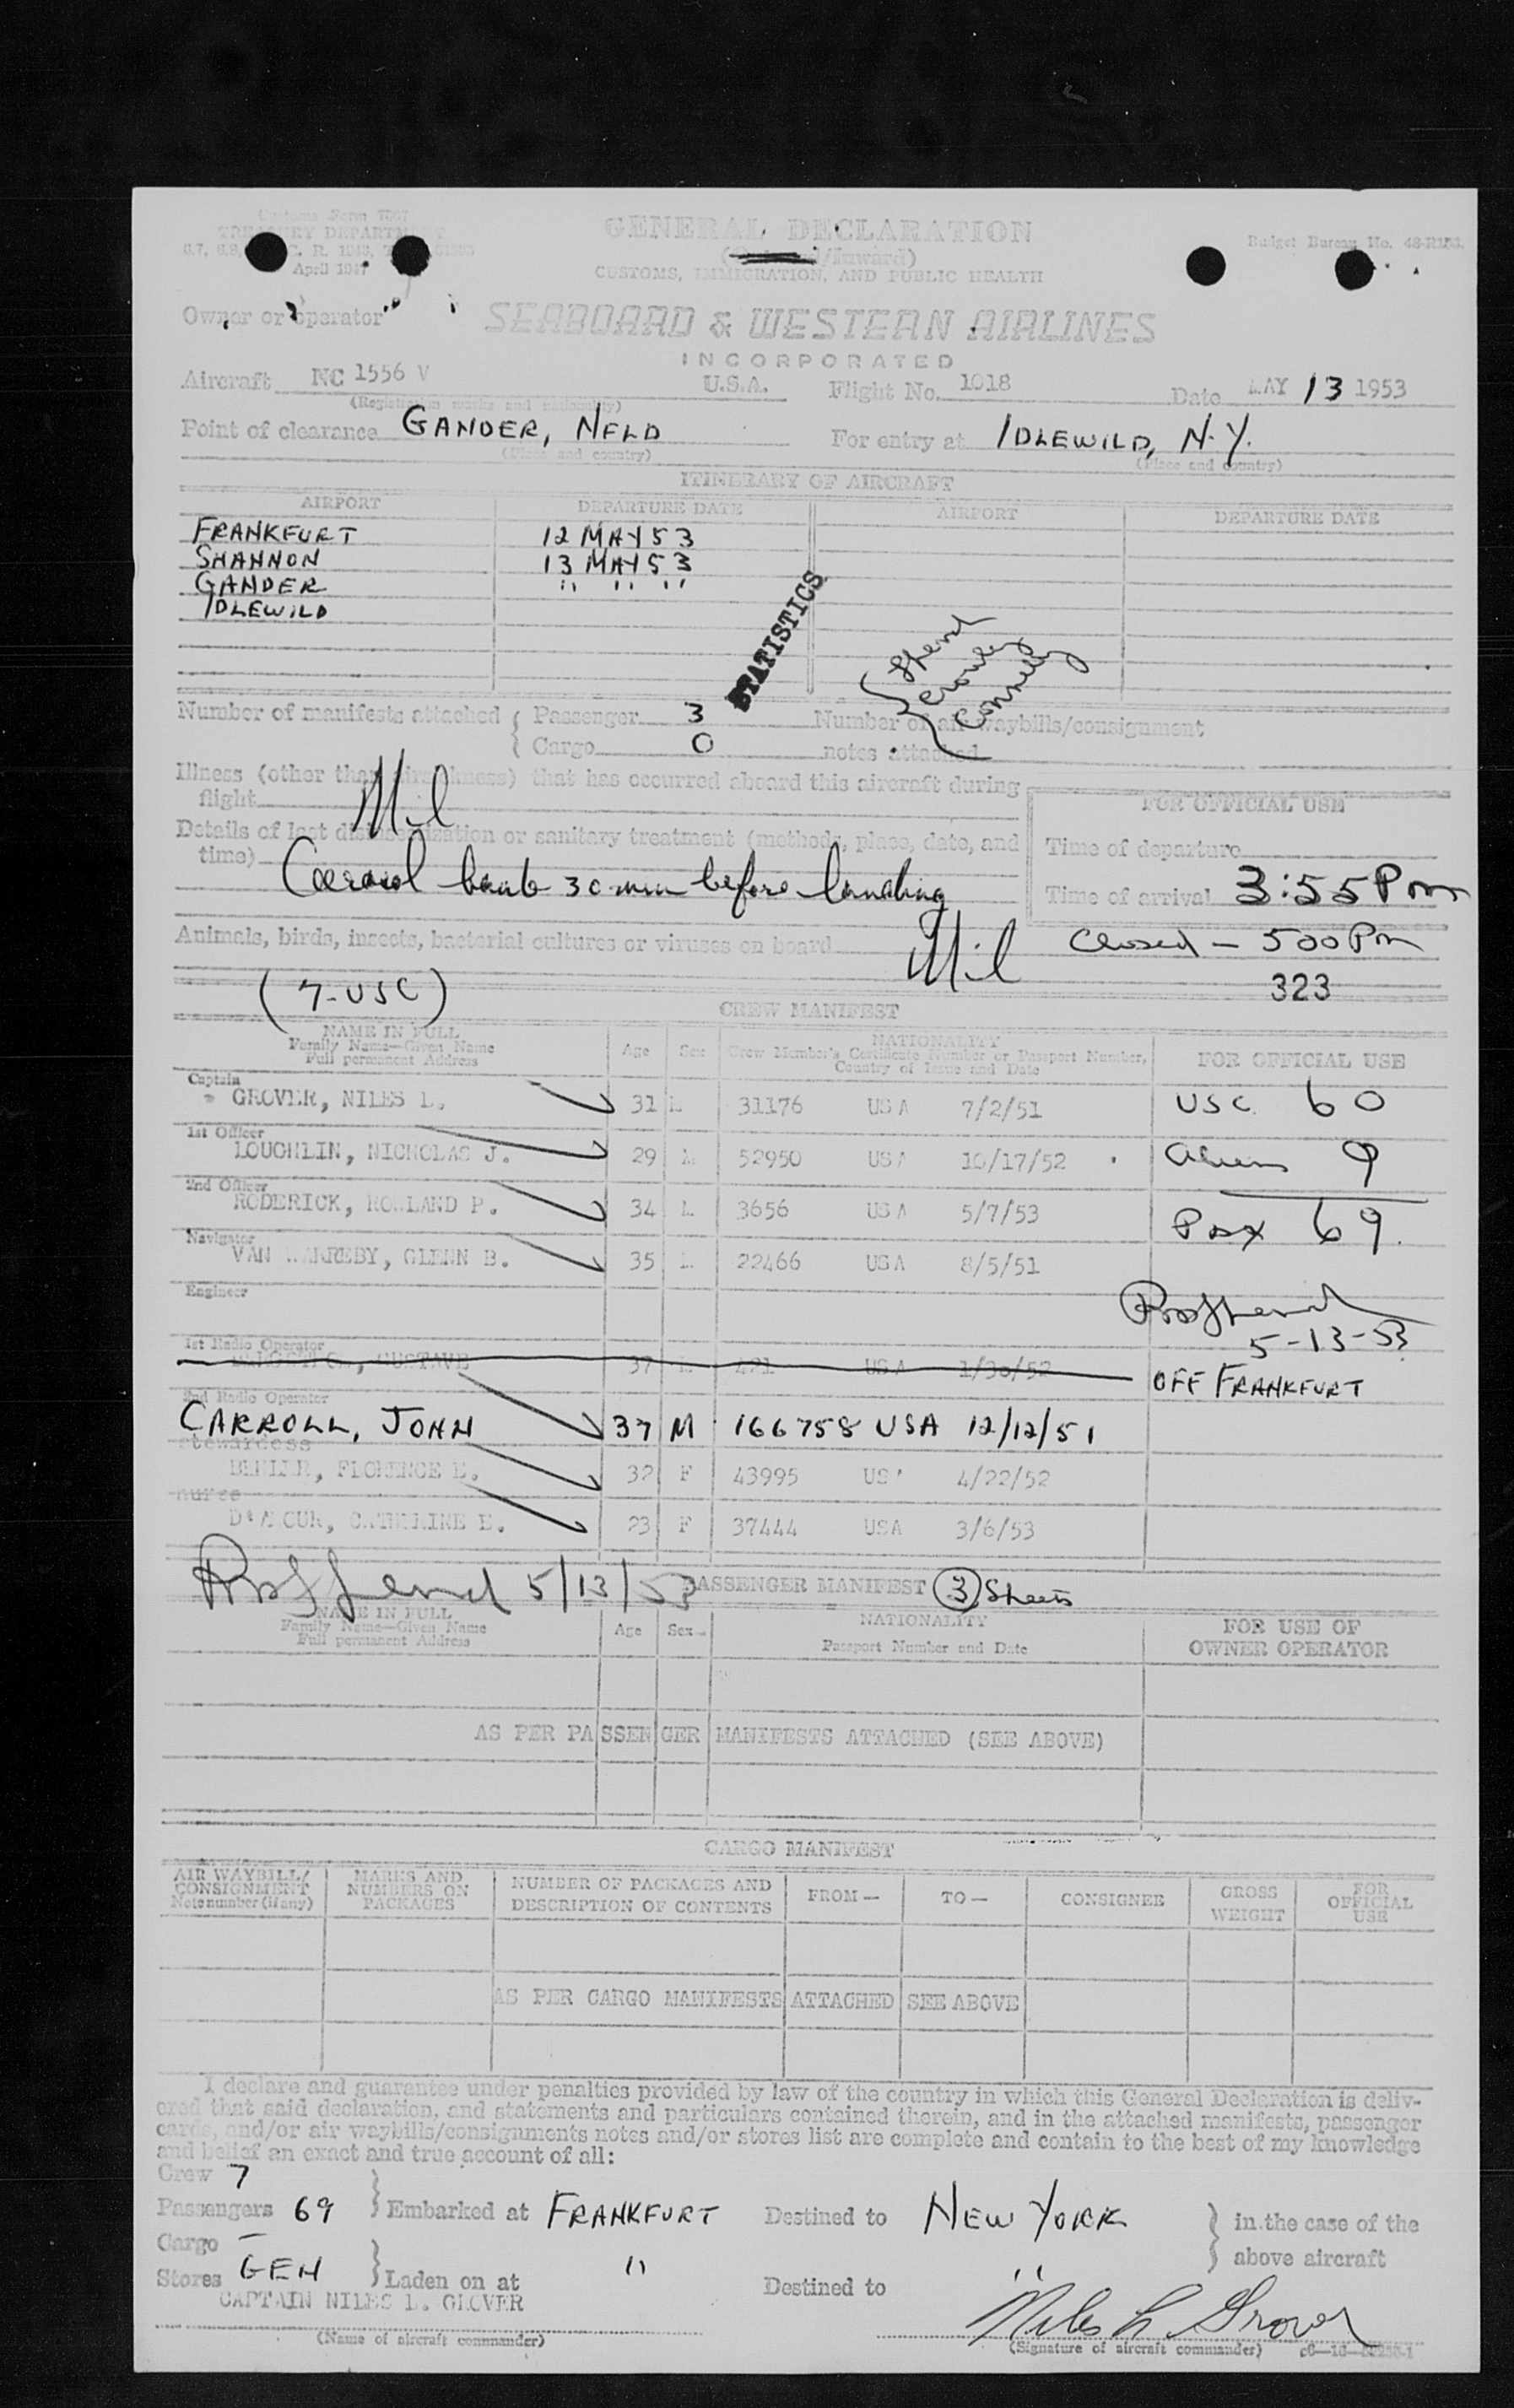 Customs Form 7507
TREASURY DEPARTMENT
April 1947
GENERAL DECLARATION
(Outward/Inward)
CUSTOMS, IMMIGRATION, AND PUBLIC HEALTH
Budget Bureau No.
Owner or operator
SEABOARD & WESTERN AIRLINES
INCORPORATED
Aircraft NC 1556 V U.S.A. Flight No. 1018 Date MAY 13 1953
(Registration marks and nationality)
Point of clearance GANDER, NFLD For entry at IDLEWILD, N.Y.
(Place and country) (Place and country)
ITINERARY OF AIRCRAFT
AIRPORT DEPARTURE DATE AIRPORT DEPARTURE DATE
FRANKFURT 12 MAY 53
SHANNON 13 MAY 53
GANDER " " "
IDLEWILD
STATISTICS
Crowley
Connelly
Number of manifests attached { Passenger 3 Number of air waybills/consignment
{ Cargo 0 notes attached
Illness (other than airsickness) that has occurred aboard this aircraft during
flight Nil
FOR OFFICIAL USE
Details of last disinsectization or sanitary treatment (methods, place, date, and
time) Aerosol bomb 30 min before landing
Time of departure
Time of arrival 3:55 Pm
Animals, birds, insects, bacterial cultures or viruses on board Nil
Closed - 500 Pm
323
(7-USC)
CREW MANIFEST
NAME IN FULL
Family Name—Given Name
Full permanent Address
Age Sex
NATIONALITY
Crew Member's Certificate Number or Passport Number,
Country of Issue and Date
FOR OFFICIAL USE
Captain
GROVER, NILES L. 31 M 31176 USA 7/2/51 USC 60
1st Officer
LOUGHLIN, NICHOLAS J. 29 M 52950 USA 10/17/52 Aliens 9
2nd Officer
RODERICK, ROWLAND P. 34 M 3656 USA 5/7/53 Pax 69.
Navigator
VAN GLENN B. 35 M 22466 USA 8/5/51
Engineer
5-13-53
1st Radio Operator
GUSTAVE 37 M 421 USA 1/30/52 OFF FRANKFURT
2nd Radio Operator
CARROLL, JOHN 37 M 166758 USA 12/12/51
Stewardess
FLORENCE E. 32 F 43995 USA 4/22/52
Nurse
CATHERINE E. 23 F 37444 USA 3/6/53
5/13/53 PASSENGER MANIFEST (3) Sheets
NAME IN FULL
Family Name—Given Name
Full permanent Address
Age Sex
NATIONALITY
Passport Number and Date
FOR USE OF
OWNER OPERATOR
AS PER PASSENGER MANIFESTS ATTACHED (SEE ABOVE)
CARGO MANIFEST
AIR WAYBILL/
CONSIGNMENT
Note number (if any)
MARKS AND
NUMBERS ON
PACKAGES
NUMBER OF PACKAGES AND
DESCRIPTION OF CONTENTS
FROM— TO— CONSIGNEE
GROSS
WEIGHT
FOR
OFFICIAL
USE
AS PER CARGO MANIFESTS ATTACHED SEE ABOVE
I declare and guarantee under penalties provided by law of the country in which this General Declaration is deliv-
ered that said declaration, and statements and particulars contained therein, and in the attached manifests, passenger
cards, and/or air waybills/consignments notes and/or stores list are complete and contain to the best of my knowledge
and belief an exact and true account of all:
Crew 7
Passengers 69 } Embarked at FRANKFURT Destined to NEW YORK } in the case of the
Cargo — above aircraft
Stores GEN } Laden on at " Destined to "
CAPTAIN NILES L. GROVER Niles L. Grover
(Name of aircraft commander) (Signature of aircraft commander)